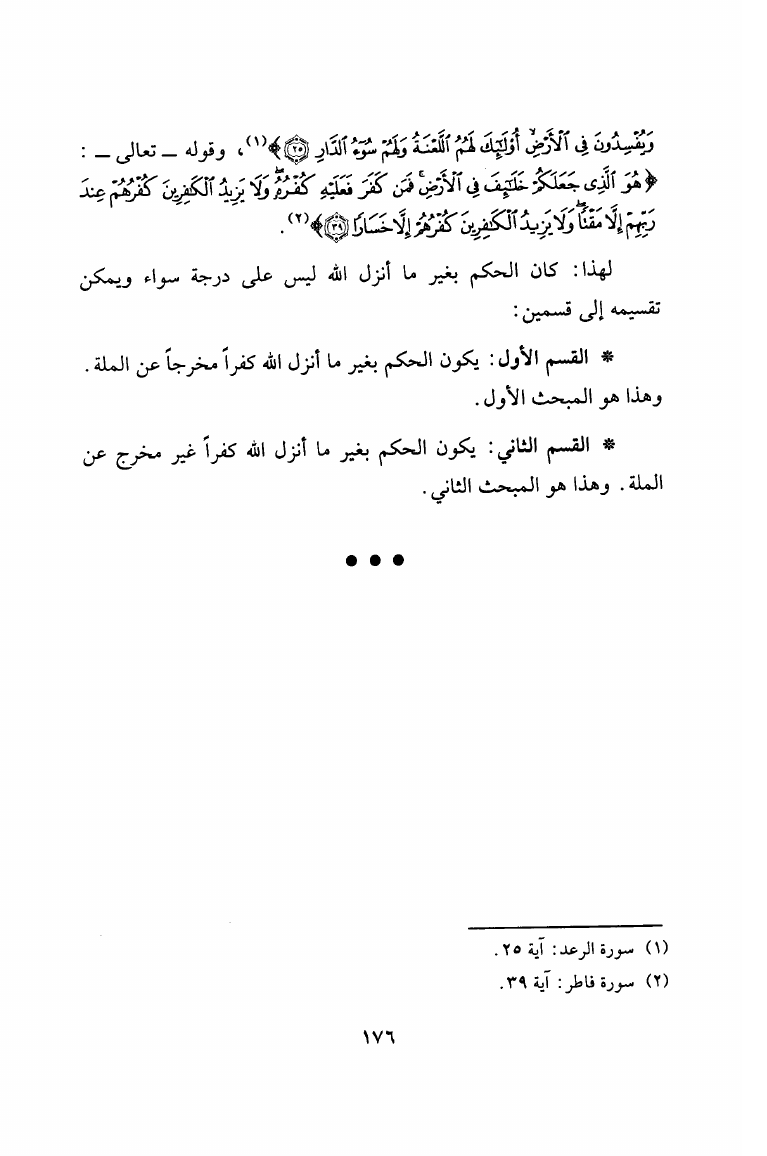 وَيُفْسِدُونَ فِي ٱلْأَرْضِ ۙ أُوْلَٰٓئِكَ لَهُمُ ٱللَّعْنَةُ وَلَهُمْ سُوٓءُ ٱلدَّارِ ۝٢٥﴾(١)، وقوله ــ تعالى ــ :
﴿هُوَ ٱلَّذِى جَعَلَكُمْ خَلَٰٓئِفَ فِى ٱلْأَرْضِ ۚ فَمَن كَفَرَ فَعَلَيْهِ كُفْرُهُۥ ۖ وَلَا يَزِيدُ ٱلْكَٰفِرِينَ كُفْرُهُمْ عِندَ
رَبِّهِمْ إِلَّا مَقْتًا ۖ وَلَا يَزِيدُ ٱلْكَٰفِرِينَ كُفْرُهُمْ إِلَّا خَسَارًا ۝٣٩﴾(٢).
لهذا: كان الحكم بغير ما أنزل الله ليس على درجة سواء ويمكن
تقسيمه إلى قسمين:
* القسم الأول: يكون الحكم بغير ما أنزل الله كفراً مخرجاً عن الملة.
وهذا هو المبحث الأول.
* القسم الثاني: يكون الحكم بغير ما أنزل الله كفراً غير مخرج عن
الملة. وهذا هو المبحث الثاني.
● ● ●
(١) سورة الرعد: آية ٢٥.
(٢) سورة فاطر: آية ٣٩.
١٧٦